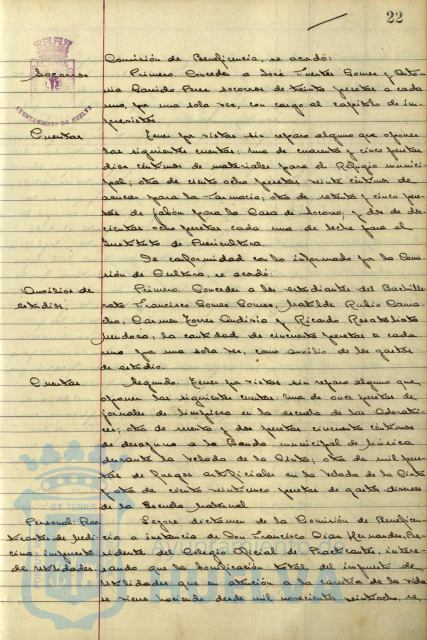 22
Comisión de Beneficencia, se acordó:
Socorros
Primero. Conceder a José Fuentes Gomez y Antonia Garrido Perez socorros de treinta pesetas a cada
uno, por una sola vez, con cargo al capítulo de imprevistos.
AYUNTAMIENTO DE HUELVA
Cuentas
Tener por vistas sin reparo alguno que oponer
las siguientes cuentas: Una de cuarenta y cinco pesetas
diez céntimos de materiales para el Refugio municipal; otra de ciento ocho pesetas veinte céntimos de
azucar para la Farmacia; otra de setenta y cinco pesetas de jabón para la Casa de Socorro; y dos de doscientas ocho pesetas cada una de leche para el
Instituto de Puericultura.
De conformidad con lo informado por la Comisión de Cultura, se acordó:
Auxilios de
estudios.
Primero. Conceder a los estudiantes del Bachillerato Francisco Gomez Gomez, Matilde Rubio Camacho, Carmen Torres y Ricardo
Mendoza, la cantidad de cincuenta pesetas a cada
uno por una sola vez, como auxilio de los gastos
de estudio.
Cuentas
Segundo. Tener por vistas sin reparo alguno que
oponer las siguientes cuentas: Una de once pesetas de
jornales de limpiero en la escuela de las
otra de y dos pesetas cincuenta céntimos
de desayuno a la Banda municipal de Música
durante la Velada de la Cinta; otra de mil pesetas de fuegos artificiales en la Velada de la Cinta
y otra de ciento veinticinco pesetas de gastos diversos
de la Escuela Maternal.
Personal: Practicantes de Medicina; impuesto
de utilidades.
Leyose dictamen de la Comisión de Beneficencia a instancia de Don Francisco Diaz Hernandez, Presidente del Colegio Oficial de Practicantes, interesando que la bonificación total del impuesto de
utilidades que en atención a la carestía de la vida
se viene haciendo desde mil novecientos veintiocho, se